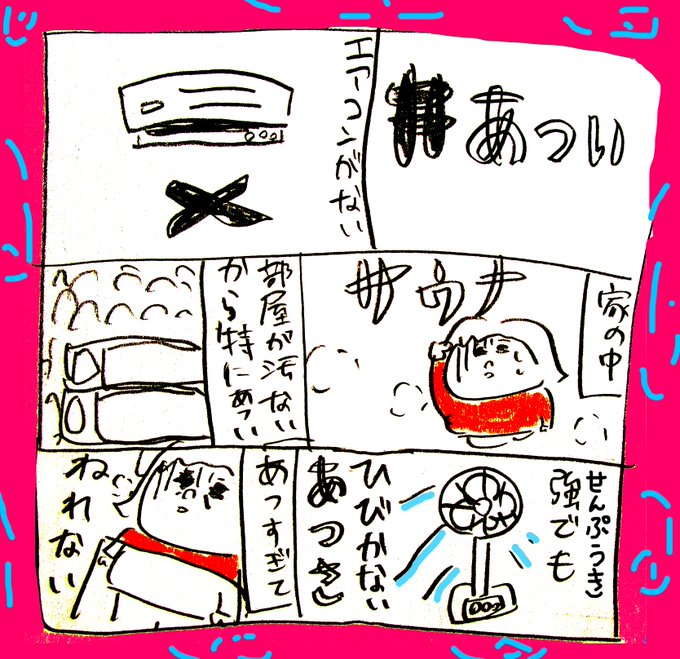 あつい
エアーコンがない
家の中
サウナ
部屋が汚ない
から特にあつい
せんぷうき
強でも
ひびかない
あつさ
あつすぎて
ねれない